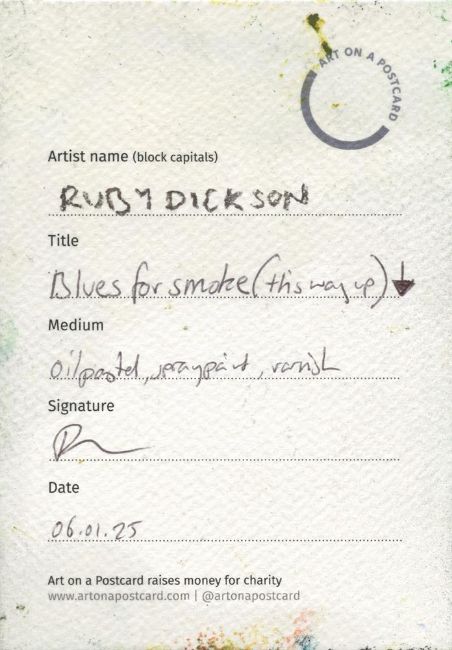 ART ON A POSTCARD
Artist name (block capitals)
RUBY DICKSON
Title
Blues for smoke (this way up)
Medium
Oil pastel, spray paint, varnish
Signature
Date
06.01.25
Art on a Postcard raises money for charity
www.artonapostcard.com | @artonapostcard